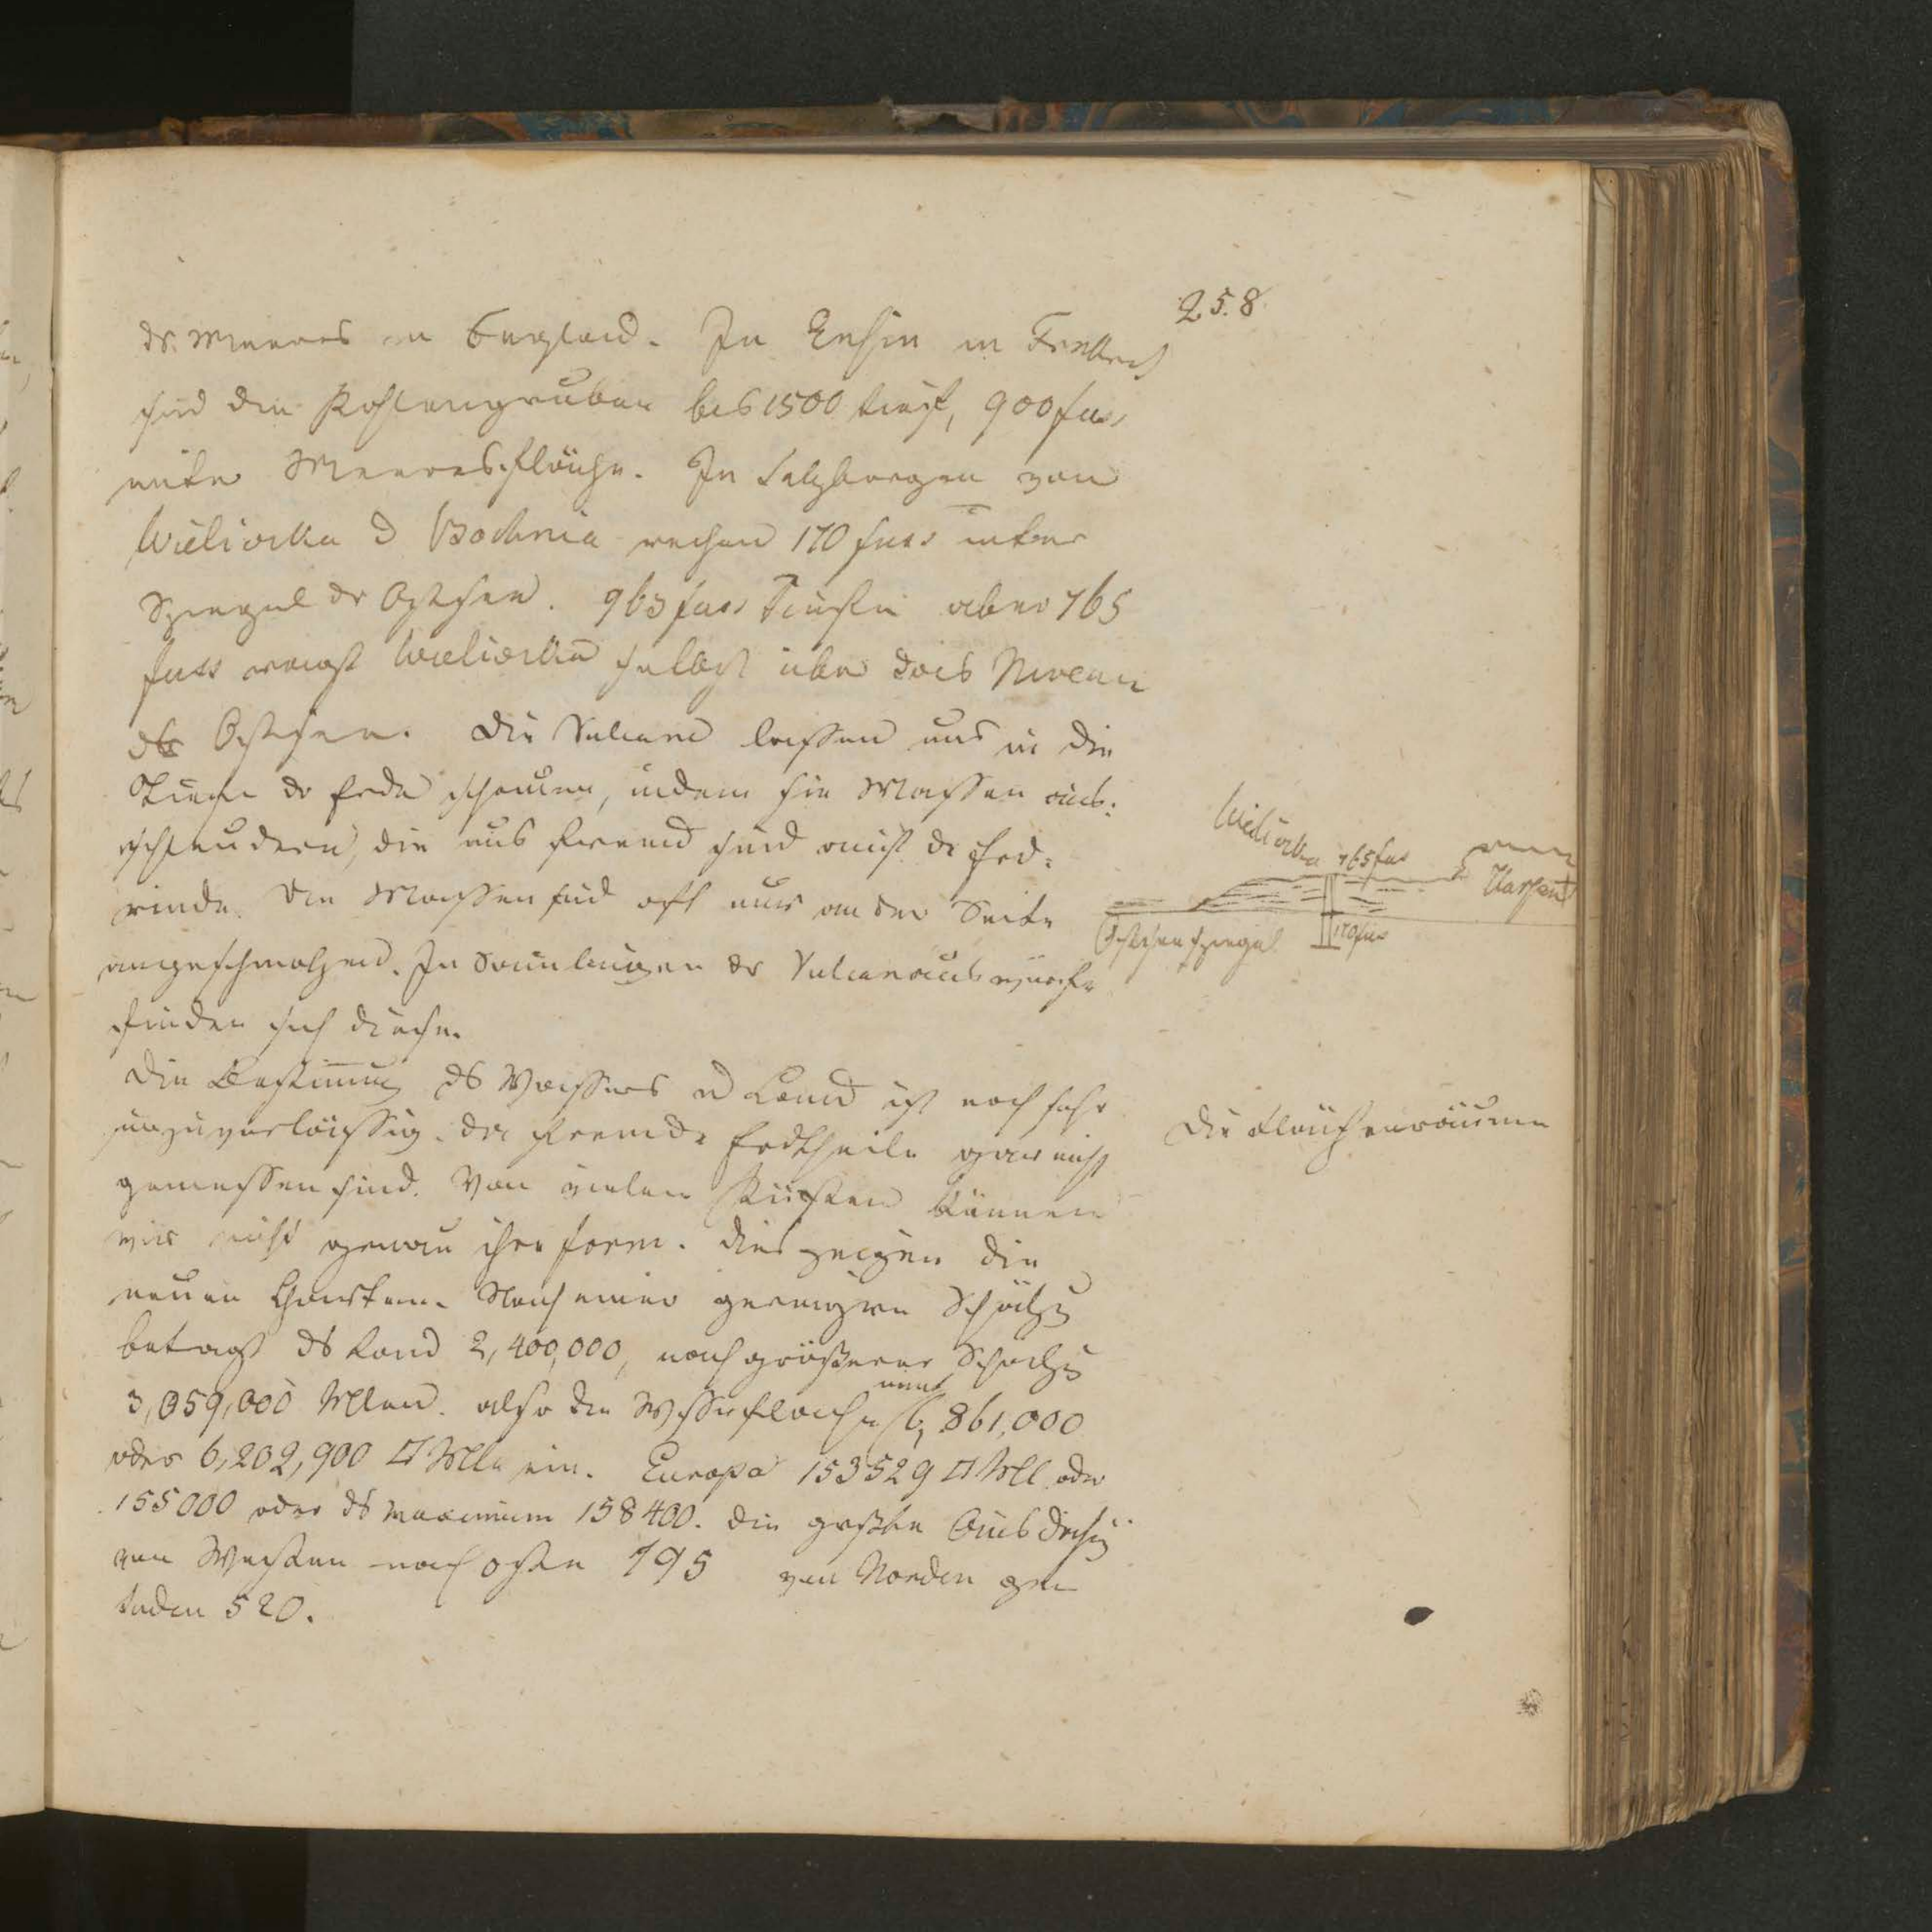 258.
ds. Meeres in England. In Enzin in Frankreich
sind die Kohlengruben bis 1500 tief, 900 fuss
unter Meeresfläche. In Salzbergen von
Wieliczka u Bochnia reichen 170 fuss unter
Spiegel der Ostsee. 963 fuss Tiefe aber 765
fuss ragt Wieliczka selbst über das Niveau
der Ostsee. Die Vulcane lassen uns in die
Tiefe der Erde schauen, indem sie Massen aus-
schleudern, die uns fremd sind auf der Erd-
rinde. Die Massen sind oft nur an der Seite
angeschmolzen. In Sammlungen der Vulcanauswürfe
finden sich diese.
Wieliczka 765 fus
Karpat
Ostseespiegel 170 fus
Die Bestimmung des Wassers u Land ist noch sehr
unzuverlässig. da fremde Erdtheile gar nicht
gemessen sind. Von vielen Küsten kennen
wir nicht genau ihre Form. dies zeigen die
neuen Charten. Nach einer geringern Schätzg
beträgt ds Land 2,400,000, nach grösserer Schätzg
3,059,000 Mlen. also die Wasserfläche nimt 6,861,000
oder 6,202,900 □ Mlle ein. Europa 153529 □ Mll oder
155000 oder ds maximum 158400. die grösste Ausdehng
von Westen nach osten 795 von Norden gen
Süden 520.
Die Flächenräume